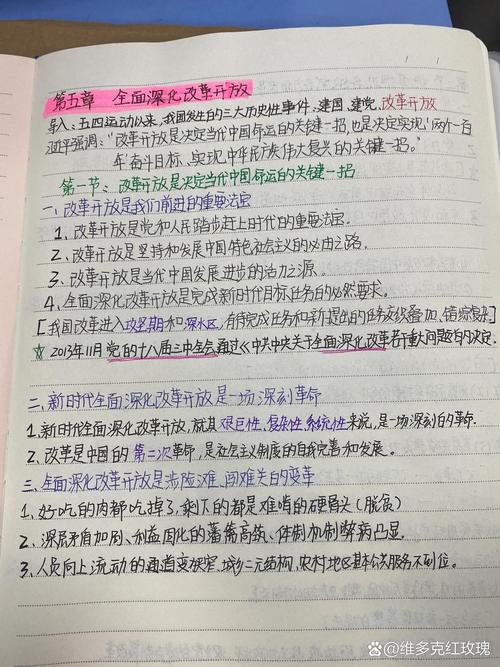 第五章 全面深化改革开放
导入：五四运动以来，我国发生的三大历史性事件：建国、建党、改革开放
习近平强调："改革开放是决定当代中国命运的关键一招，也是决定实现"两个一百
年"奋斗目标、实现中华民族伟大复兴的关键一招。"
第一节：改革开放是决定当代中国命运的关键一招
一、改革开放是我们前进的重要法宝
1、改革开放是党和人民踏步赶上时代的重要法宝。
2、改革开放是坚持和发展中国特色社会主义的必由之路。
3、改革开放是当代中国发展进步的活力之源。
4、全面深化改革开放是完成新时代目标任务的必然要求。
[我国改革进入攻坚期和深水区，有待完成任务和新提出的任务交织叠加、错综复杂]
☆ 2013年11月党的十八届三中全会通过《中共中央关于全面深化改革若干重大问题的决定》
二、新时代全面深化改革开放是一场深刻革命
1、新时代全面深化改革开放，就其艰巨性、复杂性、系统性来说，是一场深刻的革命。
2、改革是中国的第二次革命，是社会主义制度的自我完善和发展。
三、全面深化改革开放是涉险滩、闯难关的变革
1、好吃的肉都吃掉了，剩下的都是难啃的硬骨头
2、深层矛盾加剧、利益固化的藩篱高筑、体制机制弊病凸显。
3、人员向上流动的通道变狭窄，城乡二元结构，农村地区基本公共服务不到位。
知乎 @维多克红玫瑰